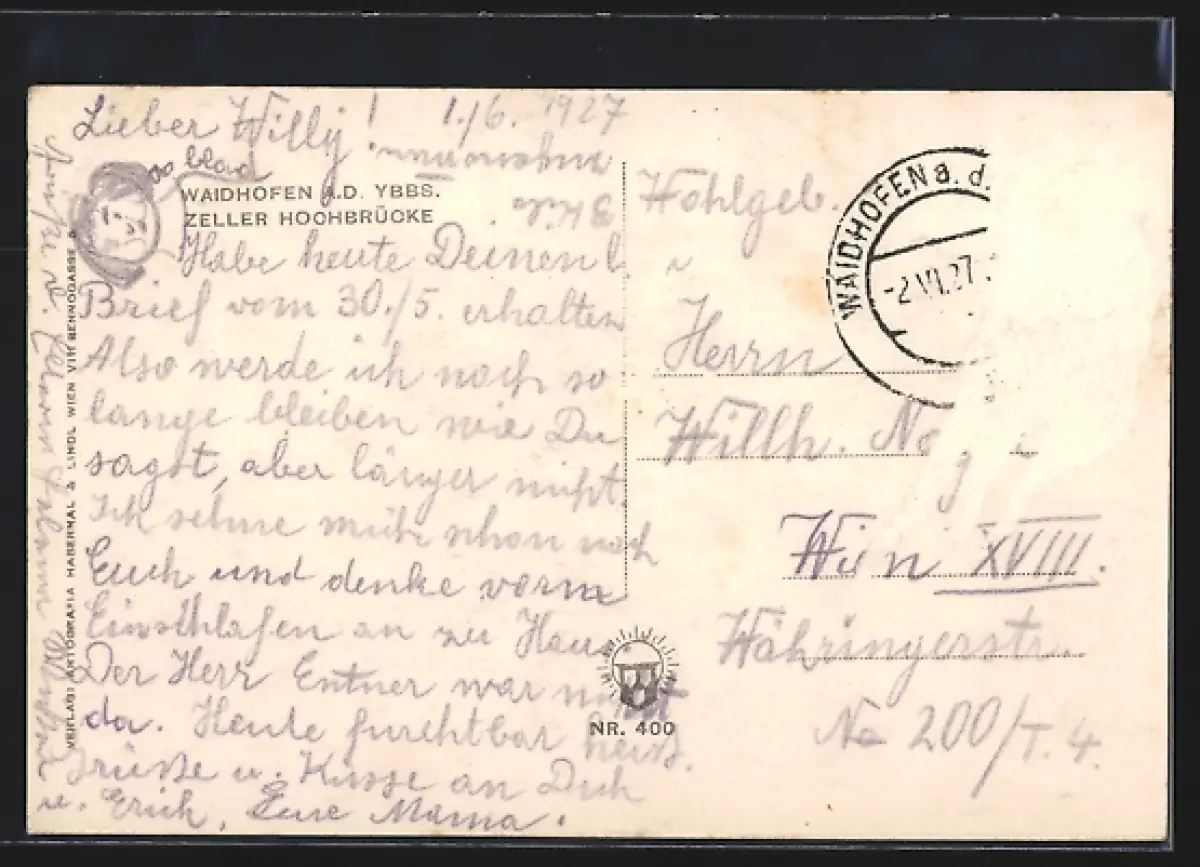 Lieber Willy! 1./6. 1927
blad
WAIDHOFEN A.D. YBBS.
ZELLER HOCHBRÜCKE
3 Kilo
zugenommen.
Habe heute Deinen l.
Brief vom 30./5. erhalten
Also werde ich noch so
lange bleiben wie Du
sagst, aber länger nicht.
Ich sehne mich schon nach
Euch und denke vorm
Einschlafen an zu Haus
Der Herr Entner war nicht
da. Heute furchtbar heiß.
Grüße u. Küsse an Dich
u. Erich, Eure Mama.
VERLAG: ARTOGRAFIA HABERMAL & LINDL WIEN VIII BENNOGASSE
NR. 400
WAIDHOFEN a. d.
-2.VI.27.
Wohlgeb.
Herrn
Willh. No
Wien XVIII.
Währingerstr.
No 200/T. 4.